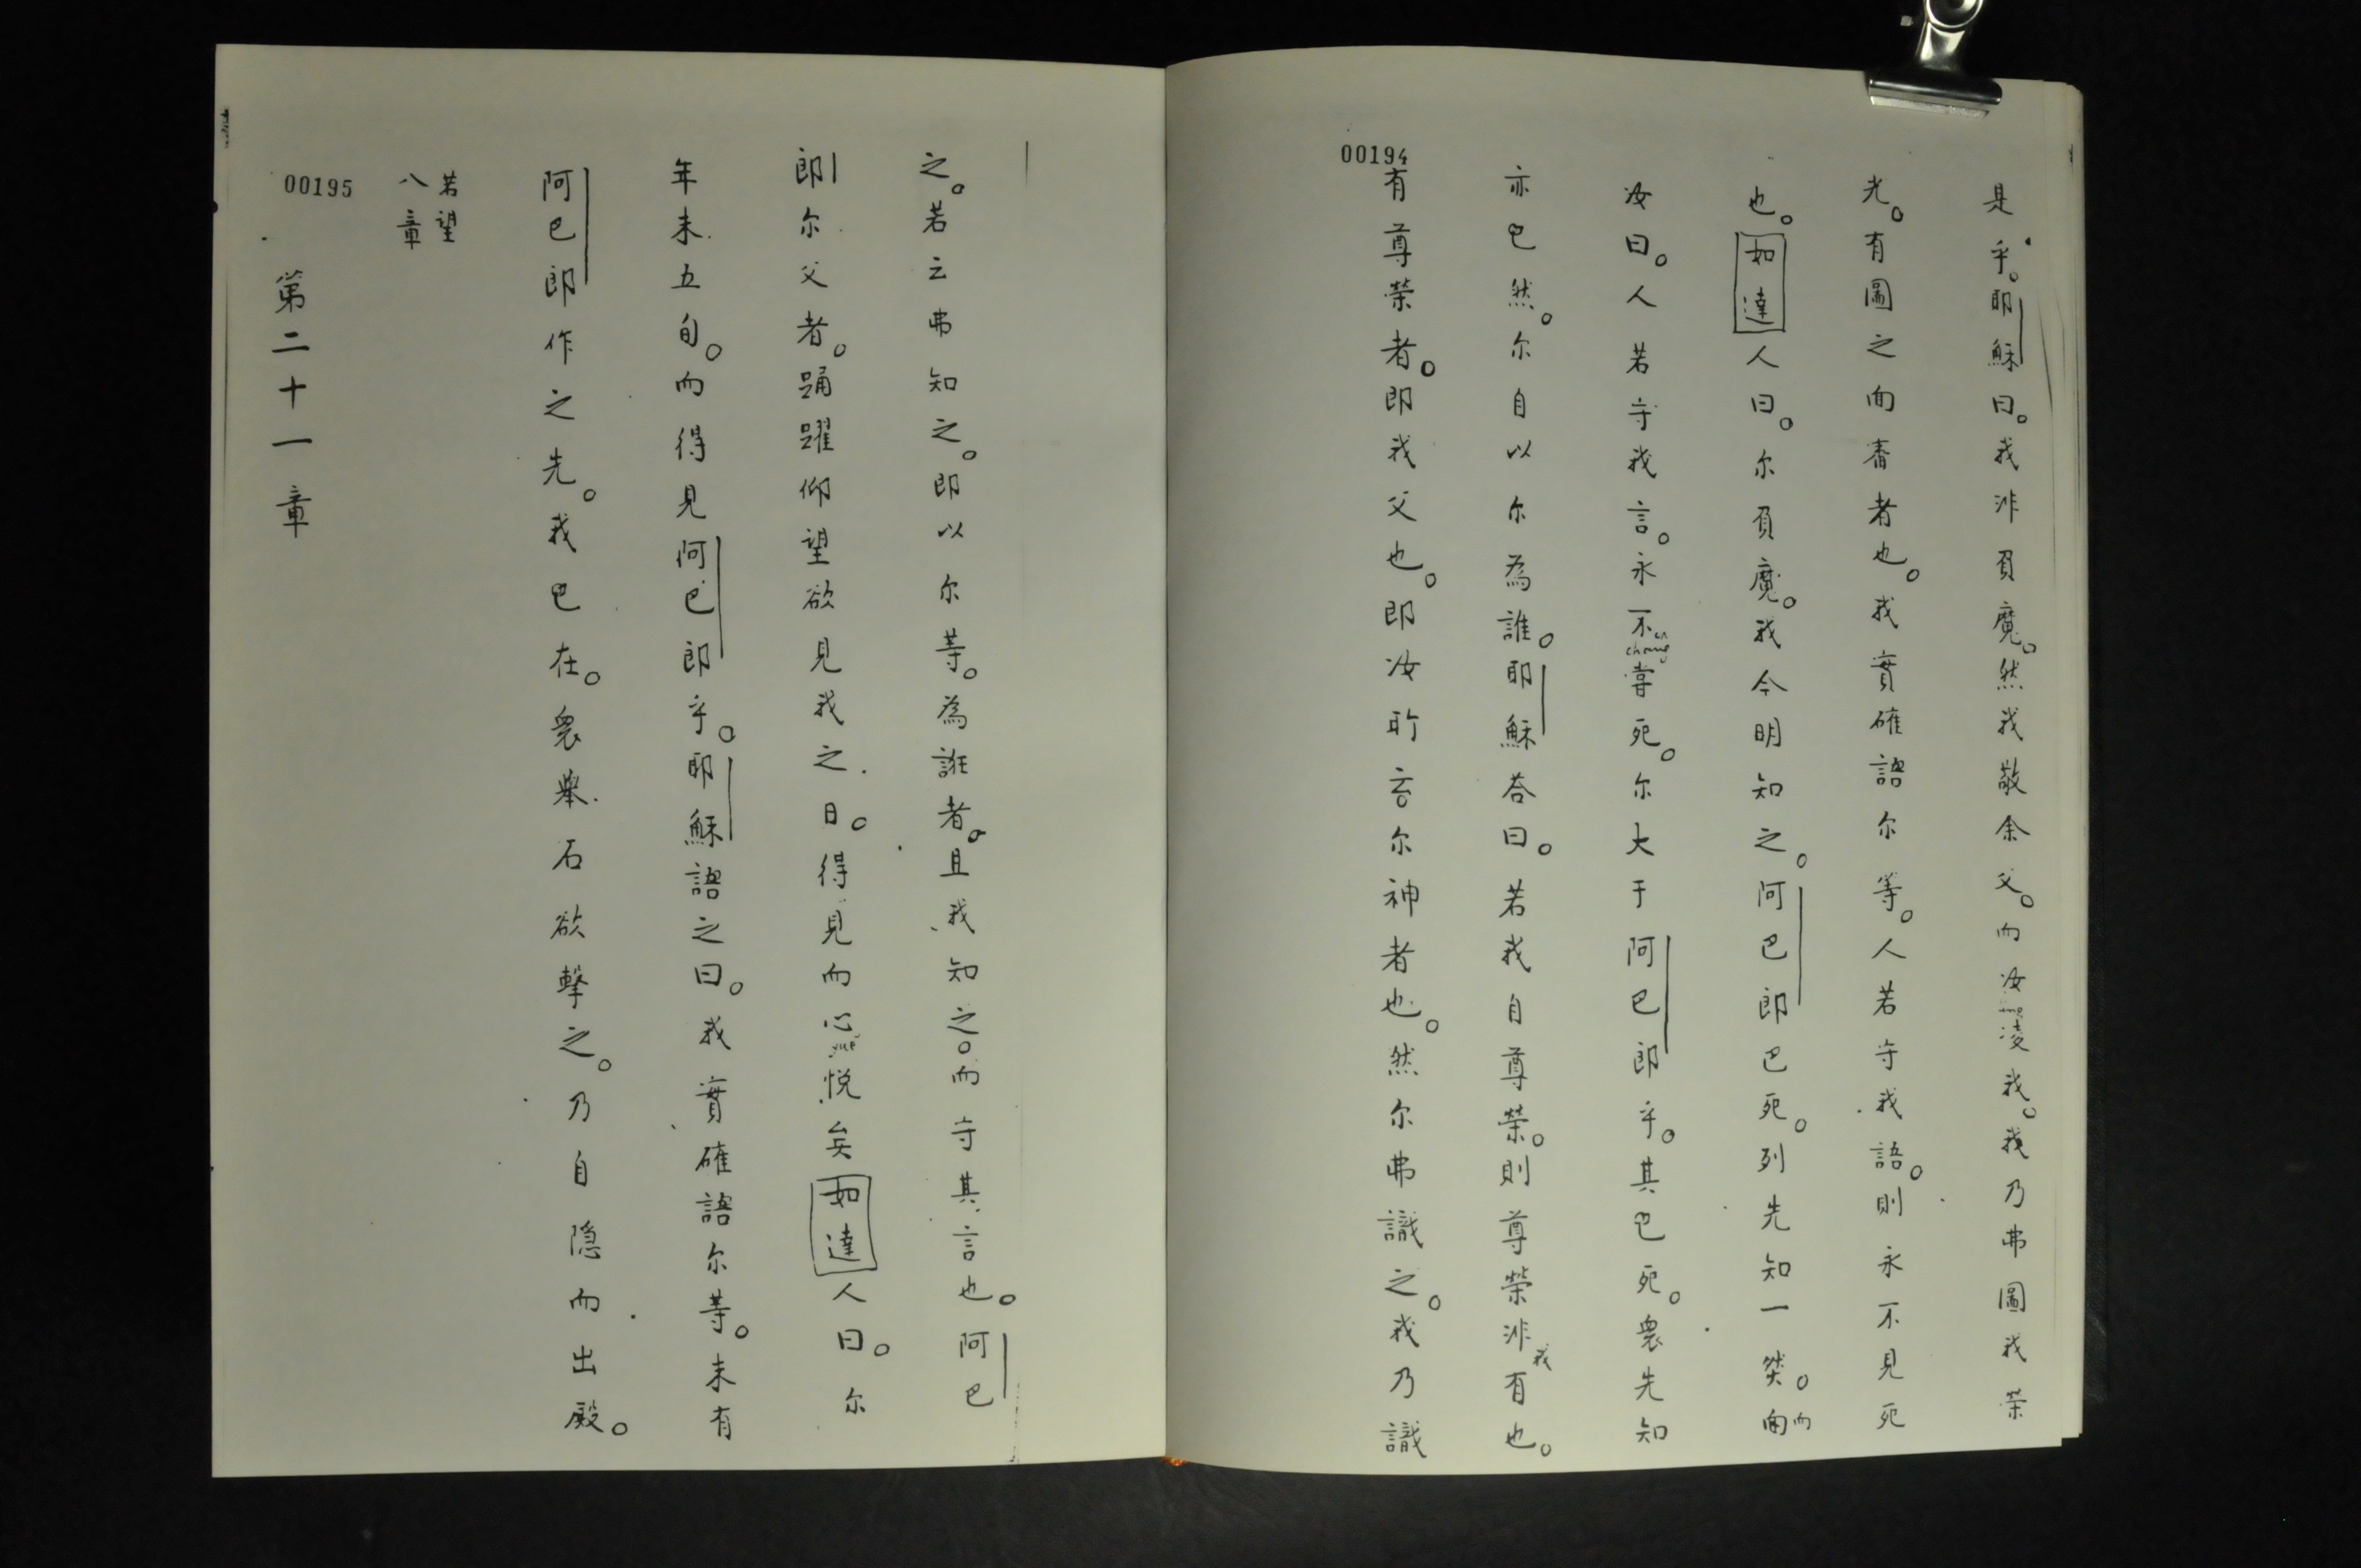 00194
是乎。耶穌曰。我非負魔。然我敬余父。而汝凌我。我乃弗圖我荣
光。有圖之而審者也。我實確語尔等。人若守我語。則永不見死
也。如達人曰。尔負魔。我今明知之。阿巴郎巴死。列先知一然。而
汝曰。人若守我言。永不嘗死。尔大于阿巴郎乎。其巴死。衆先知
chang
亦巴然。尔自以尔為誰。耶穌荅曰。若我自尊荣。則尊榮非我有也。
有尊榮者。即我父也。即汝所言尔神者也。然尔弗識之。我乃識
之。若云弗知之。即以尔等。為誑者。且我知之。而守其言也。阿巴
郎尔父者。踊躍仰望欲見我之日。得見而心悦矣如達人曰。尔
yue
年未五旬。而得見阿巴郎乎。耶穌語之曰。我實確語尔等。未有
阿巴郎作之先。我巴在。衆舉石欲擊之。乃自隐而出殿。
若望
八章
00195
第二十一章